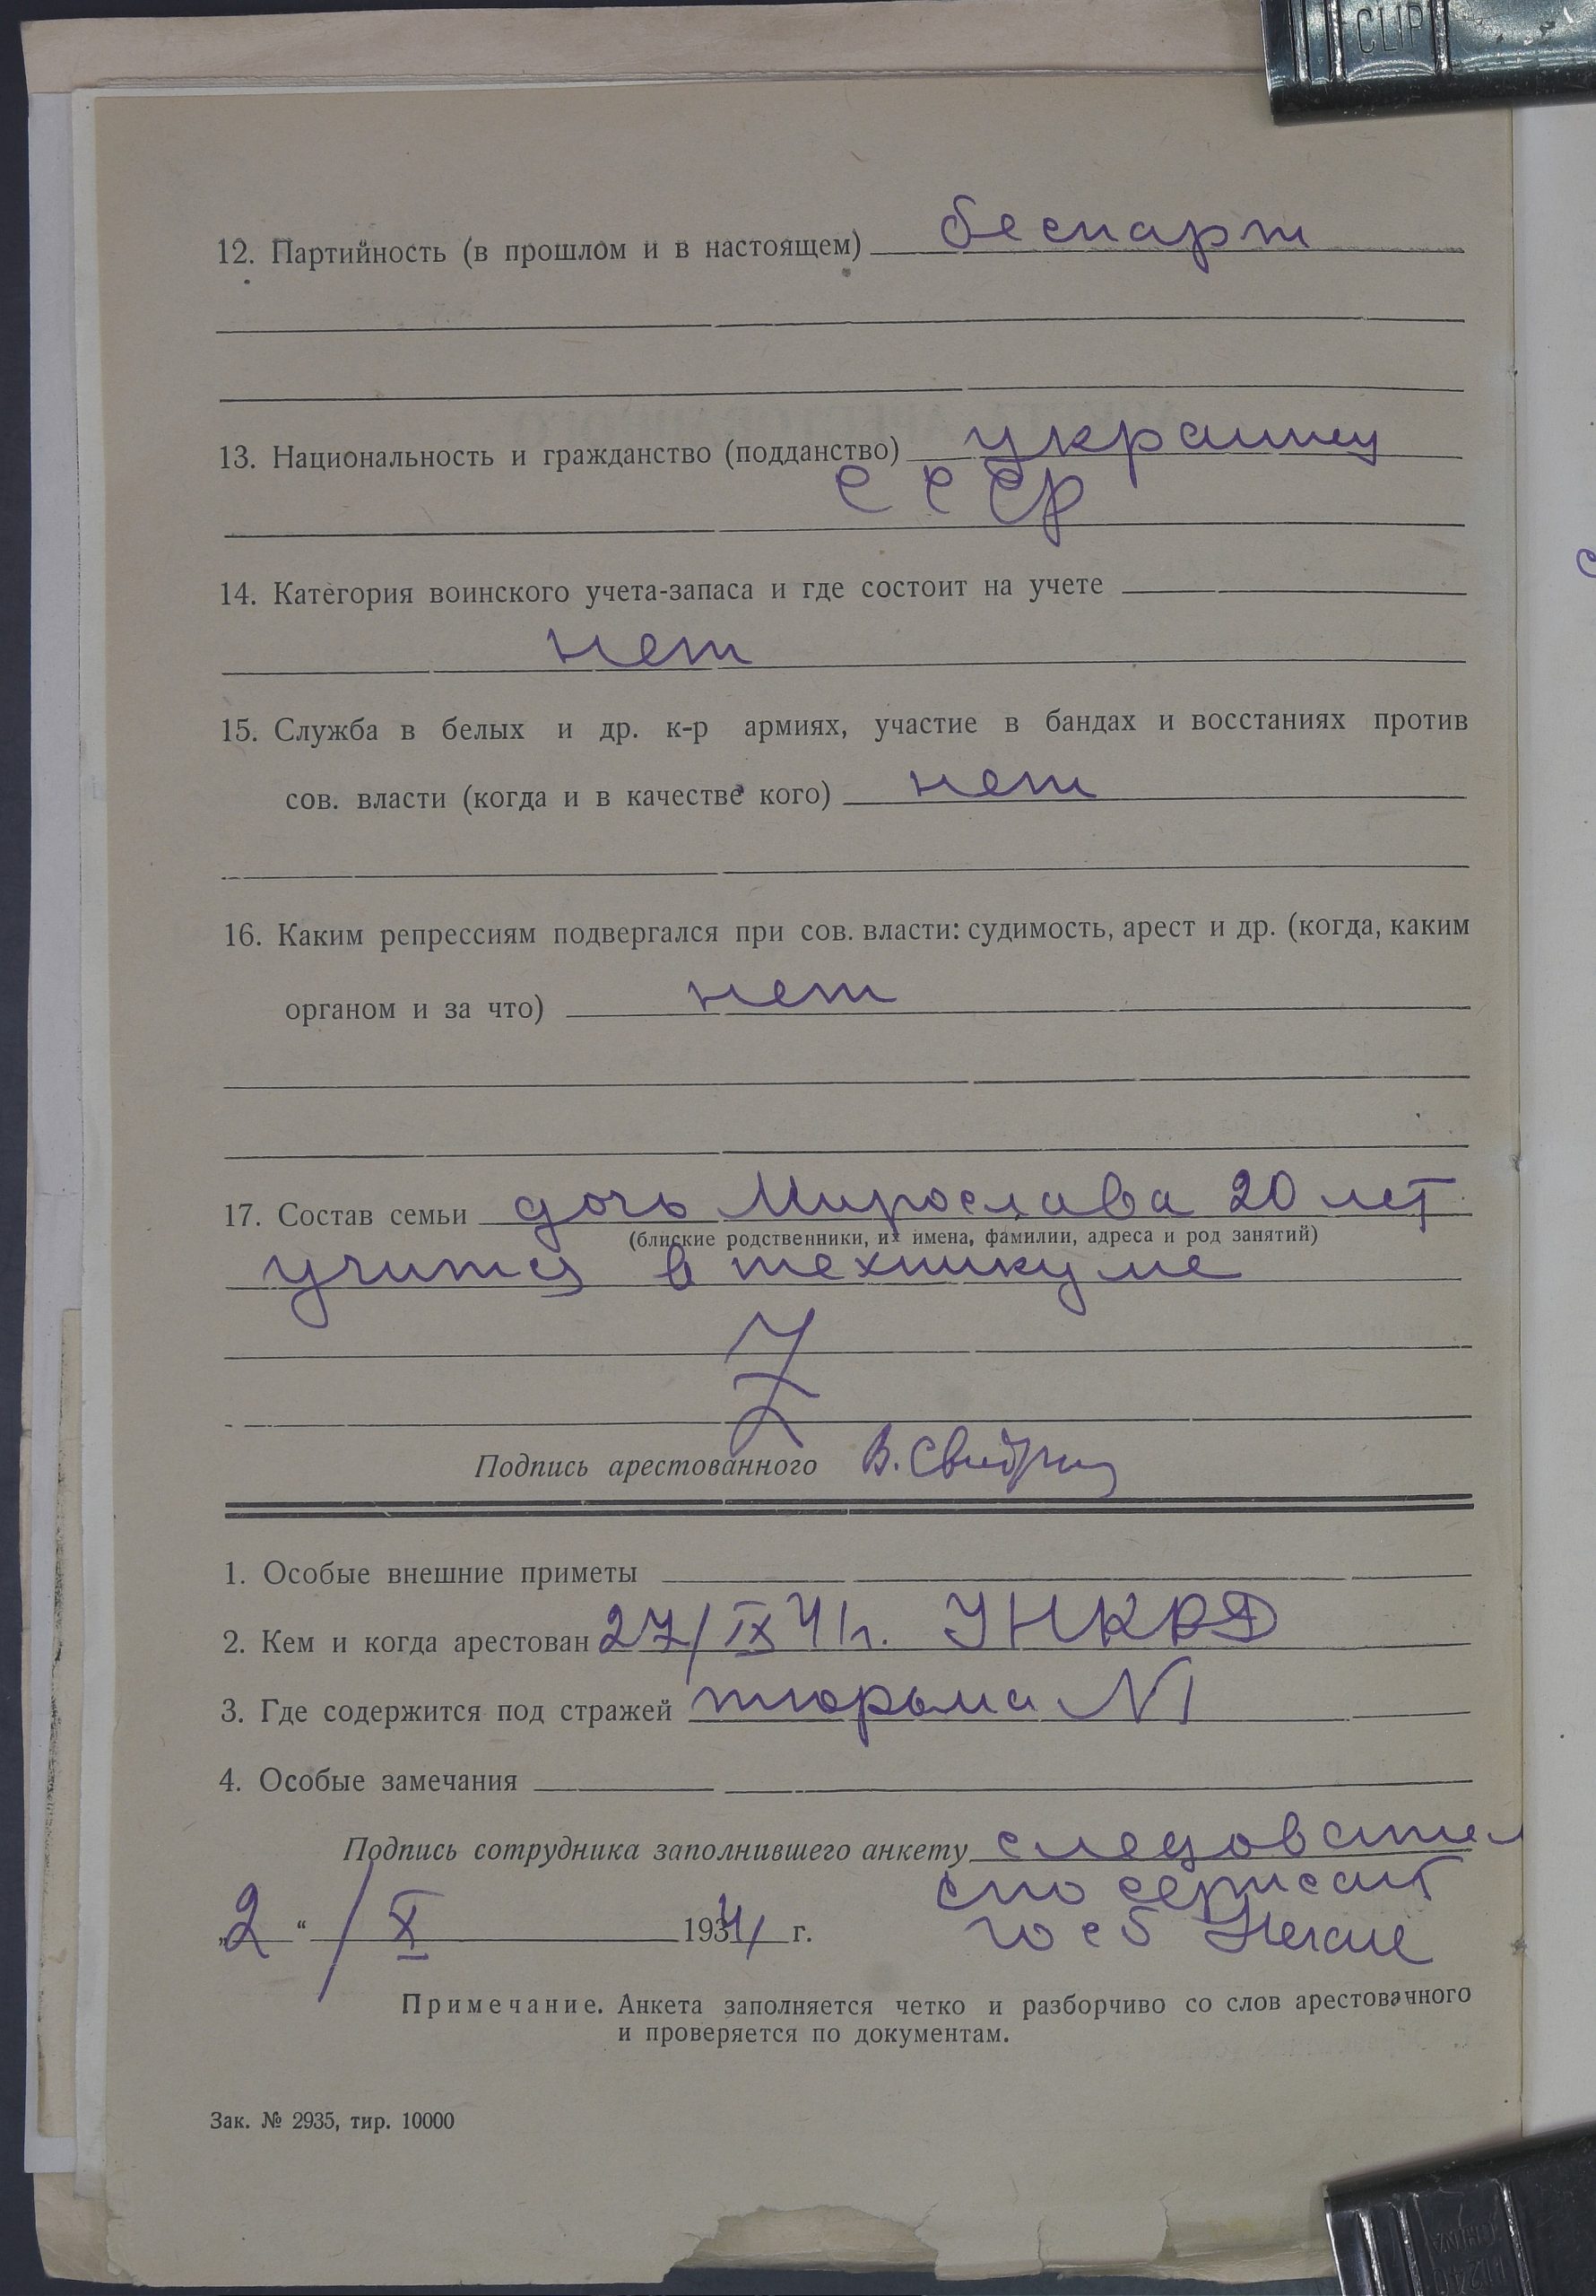 12. Партийность (в прошлом и в настоящем) беспарт
13. Национальность и гражданство (подданство) украинец
СССР
14. Категория воинского учета-запаса и где состоит на учете
нет
15. Служба в белых и др. к-р армиях, участие в бандах и восстаниях против
сов. власти (когда и в качестве кого) нет
16. Каким репрессиям подвергался при сов. власти: судимость, арест и др. (когда, каким
органом и за что) нет
17. Состав семьи дочь Мирослава 20 лет
(блиские родственники, их имена, фамилии, адреса и род занятий)
учится в техникуме
Подпись арестованного В. Свидзин
1. Особые внешние приметы
2. Кем и когда арестован 27/IX 41г. УНКВД
3. Где содержится под стражей тюрьма N1
4. Особые замечания
Подпись сотрудника заполнившего анкету следовател
спо сержант
„2“ / X 1941 г. гос б
Примечание. Анкета заполняется четко и разборчиво со слов арестованного
и проверяется по документам.
Зак. № 2935, тир. 10000
CLIP